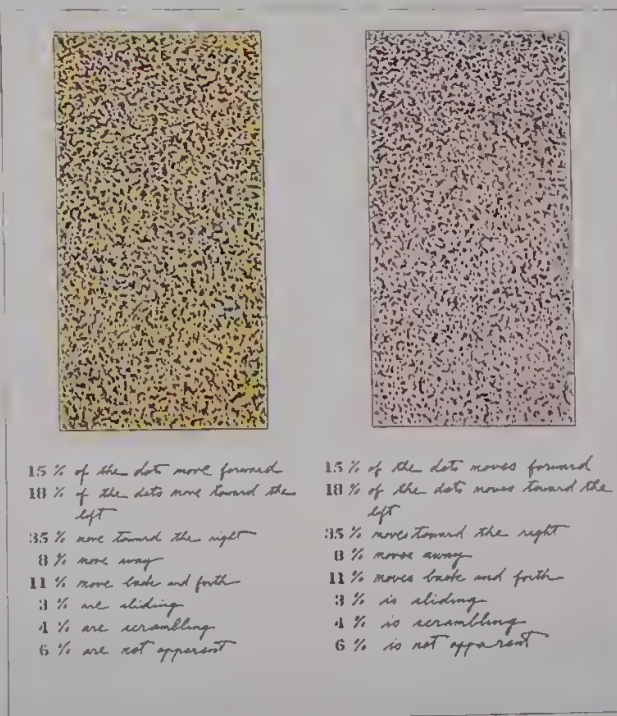 15 % of the dots move forward
18 % of the dots move toward the
left
35 % move toward the right
8 % move away
11 % move back and forth
3 % are sliding
4 % are scrambling
6 % are not apparent
15 % of the dots moves forward
18 % of the dots moves toward the
left
35 % moves toward the right
8 % moves away
11 % moves back and forth
3 % is sliding
4 % is scrambling
6 % is not apparent